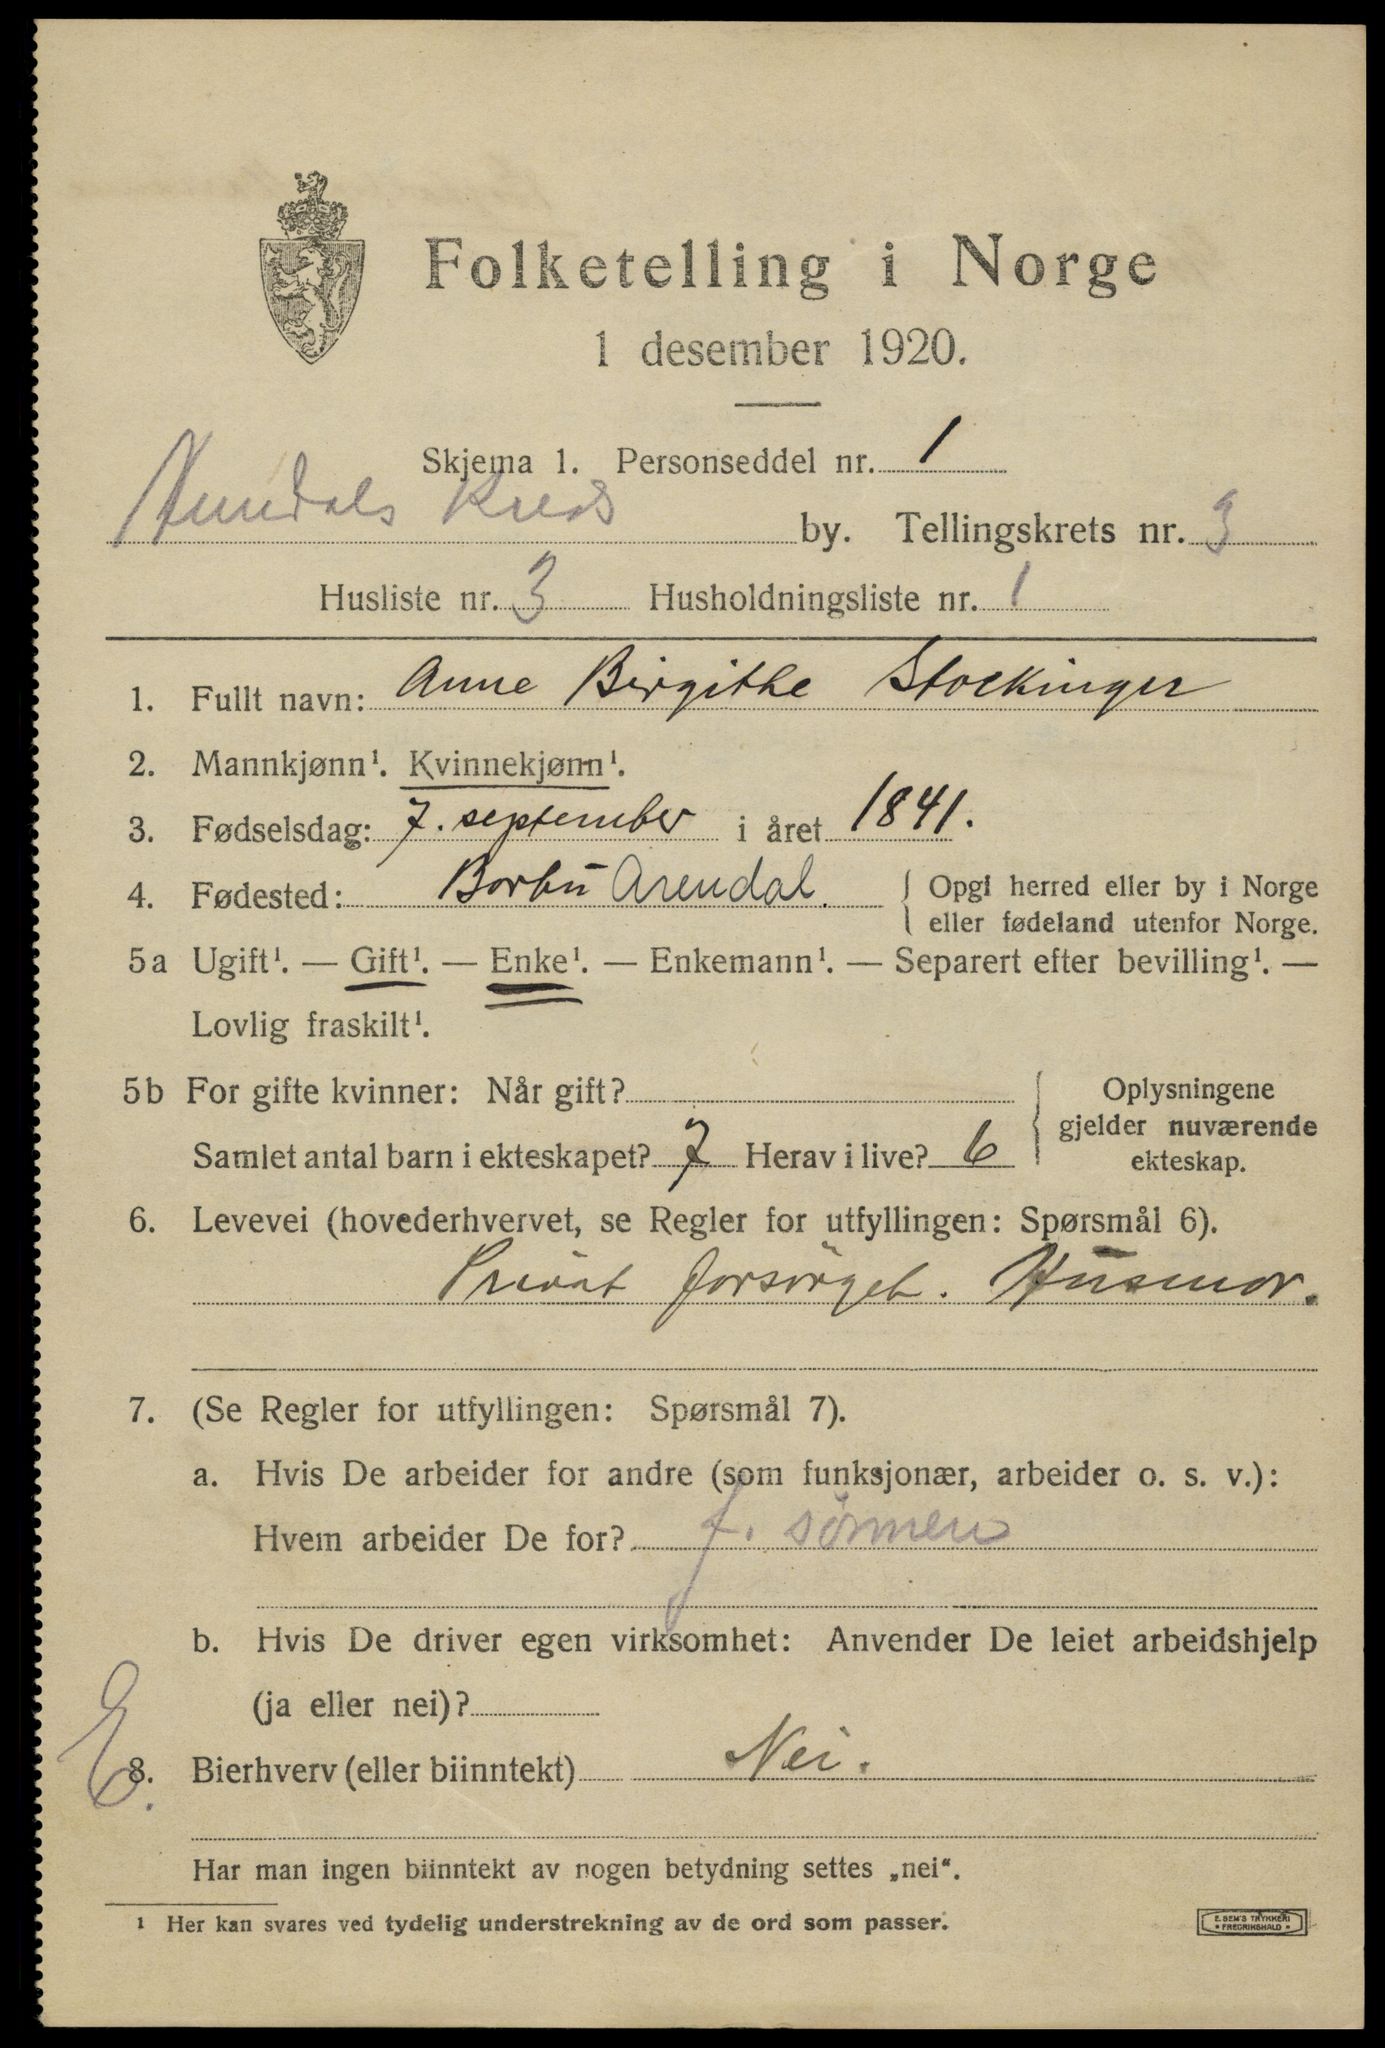 Folketelling i Norge
1 desember 1920.
Skjema 1. Personseddel nr. 1
Kreds by. Tellingskrets nr. 3
Husliste nr. 3 Husholdningsliste nr. 1
1. Fullt navn: Anne Birgithe Stockinger
2. Mannkjønn¹. Kvinnekjønn¹.
3. Fødselsdag: 7. september i året 1841.
4. Fødested: Barbu Arendal. { Opgi herred eller by i Norge
eller fødeland utenfor Norge.
5a Ugift¹. — Gift¹. — Enke¹. — Enkemann¹. — Separert efter bevilling¹. —
Lovlig fraskilt¹.
5b For gifte kvinner: Når gift?
Samlet antal barn i ekteskapet? 7 Herav i live? 6
Oplysningene
gjelder nuværende
ekteskap.
6. Levevei (hovederhvervet, se Regler for utfyllingen: Spørsmål 6).
Privat forsörget. Husmor.
7. (Se Regler for utfyllingen: Spørsmål 7).
a. Hvis De arbeider for andre (som funksjonær, arbeider o. s. v.):
Hvem arbeider De for? f. sönnen
b. Hvis De driver egen virksomhet: Anvender De leiet arbeidshjelp
(ja eller nei)?
E.
8. Bierhverv (eller biinntekt) Nei.
Har man ingen biinntekt av nogen betydning settes „nei“.
¹ Her kan svares ved tydelig understrekning av de ord som passer.
E. SEM'S TRYKKERI
FREDRIKSHALD